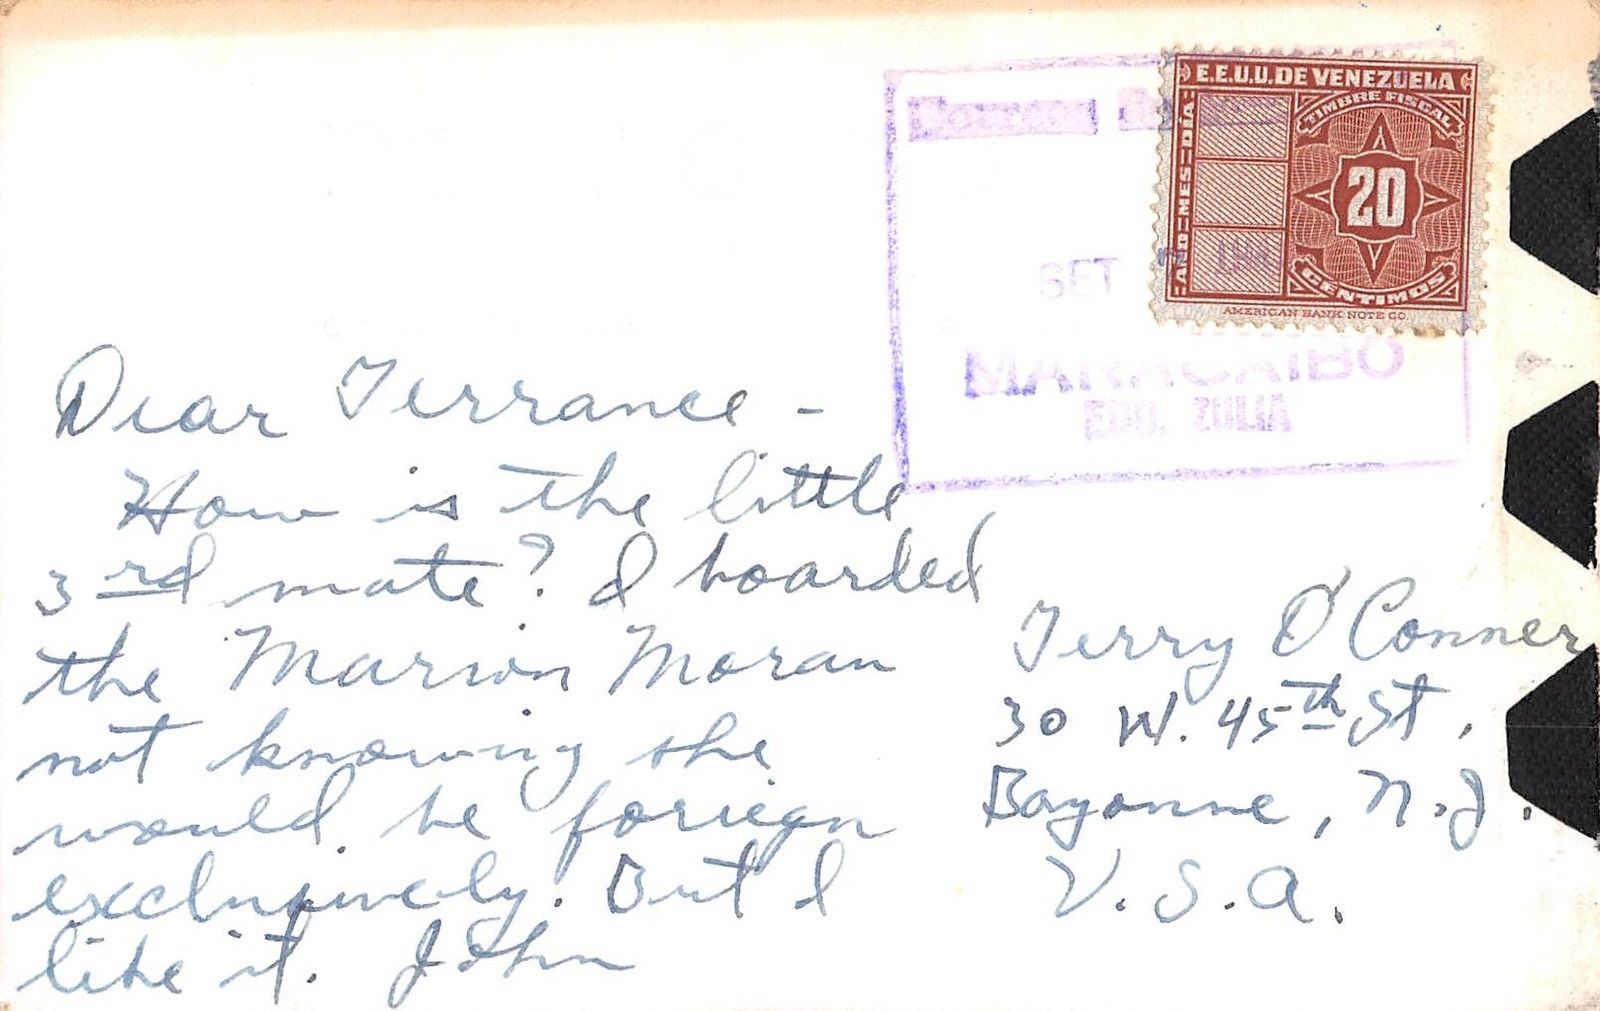 E.E.U.U.DE VENEZUELA
TIMBRE FISCAL
AÑO MES DIA
20
CENTIMOS
AMERICAN BANK NOTE CO.
SET
MARACAIBO
EDO. ZULIA
Dear Terrance -
How is the little
3rd mate? I boarded
the Marion Moran
not knowing she
would be foriegn
exclusively. But I
like it. John
Terry O'Conner
30 W. 45th St,
Bayonne, N.J.
U.S.A.